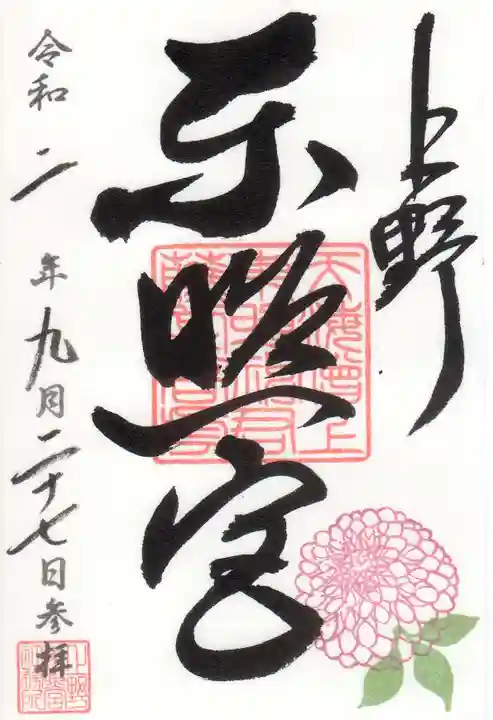 上野
東照宮
令和二年九月二十七日参拝